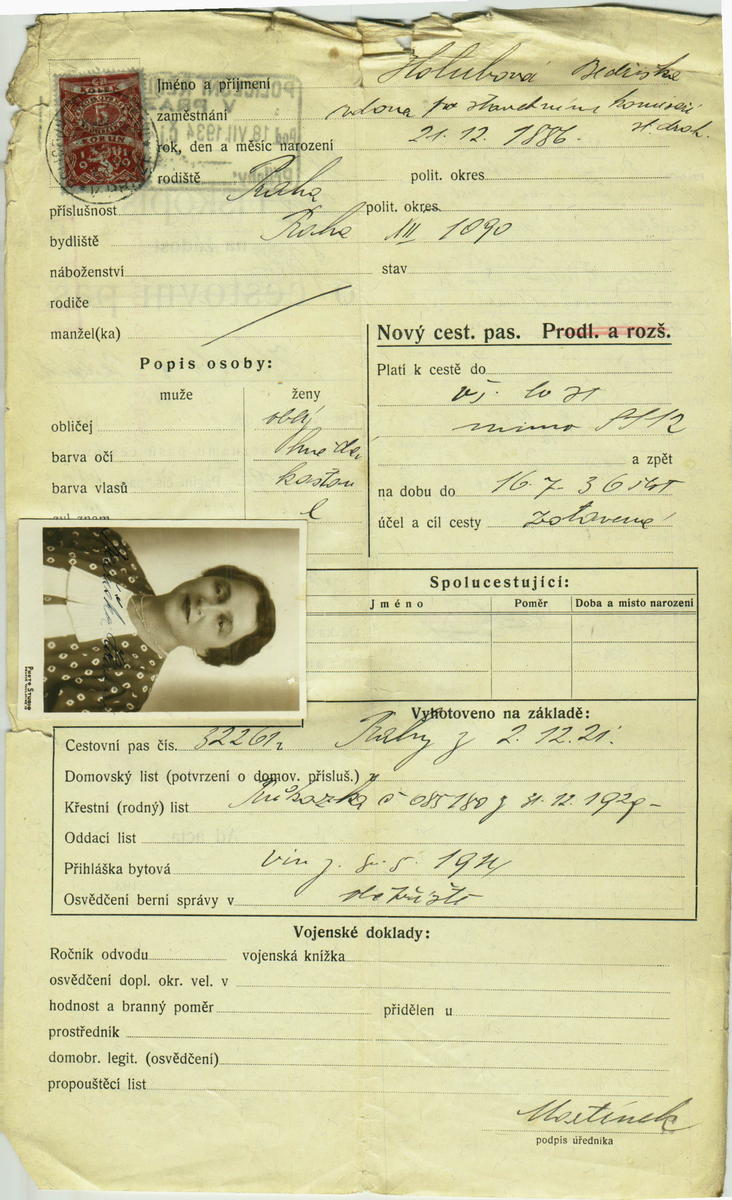 KOLEK
5
KORUN
Jméno a příjmení Holubová Bedřiška
zaměstnání vdova po
rok, den a měsíc narození 21. 12. 1886.
rodiště Praha polit. okres
příslušnost polit. okres
bydliště Praha XII 1090
náboženství stav
rodiče
manžel(ka)
Popis osoby:
muže ženy
obličej oblý
barva očí hnědé
barva vlasů kaštan
Nový cest. pas. Prodl. a rozš.
Platí k cestě do
mimo SSSR
a zpět
na dobu do 16. 7. 36
účel a cíl cesty zotavená
Spolucestující:
Jméno Poměr Doba a místo narození
PHOTO STUDIO
Vyhotoveno na základě:
Cestovní pas čís. 32261 Prahy z 2. 12. 21.
Domovský list (potvrzení o domov. přísluš.) z
Křestní (rodný) list Průkazka č 085180 z 31. 12. 1929
Oddací list
Přihláška bytová
Osvědčení berní správy v
Vojenské doklady:
Ročník odvodu vojenská knížka
osvědčení dopl. okr. vel. v
hodnost a branný poměr přidělen u
prostředník
domobr. legit. (osvědčení)
propouštěcí list
Martínek
podpis úředníka